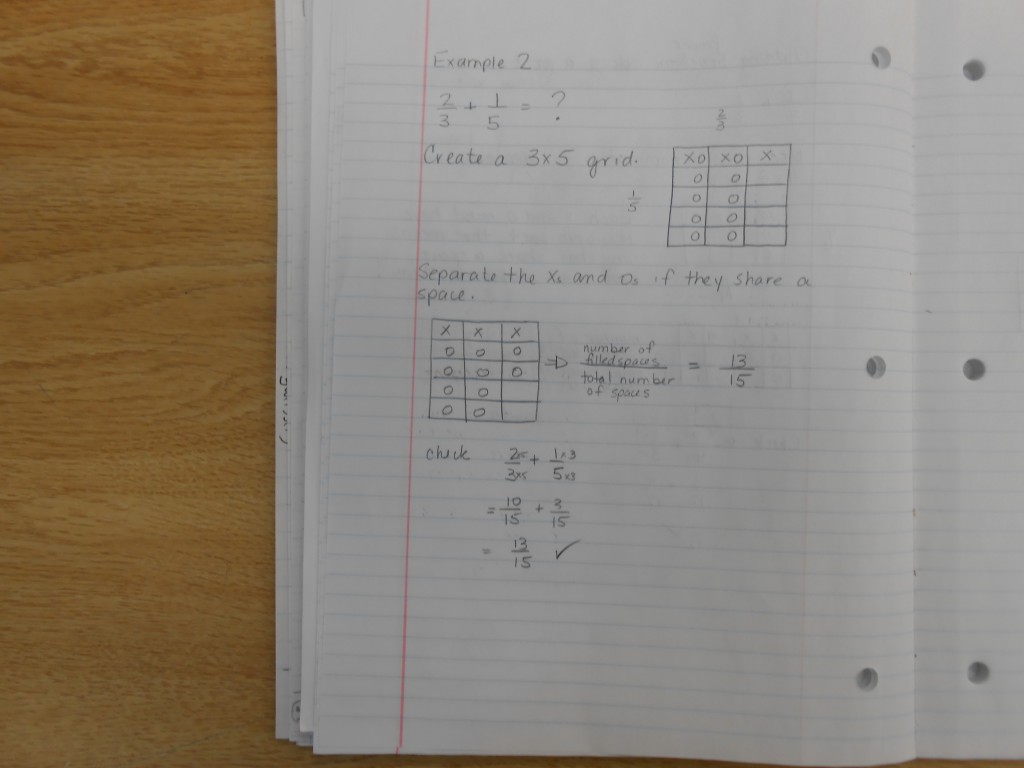 Example 2
2/3 + 1/5 = ?
2/3
Create a 3x5 grid.
XO XO X
O O
1/5 O O
O O
O O
Separate the Xs and Os if they share a
space.
X X X
O O O
O O O
O O
O O
⇒ number of filled spaces / total number of spaces = 13/15
check 2x5/3x5 + 1x3/5x3
= 10/15 + 3/15
= 13/15 ✓